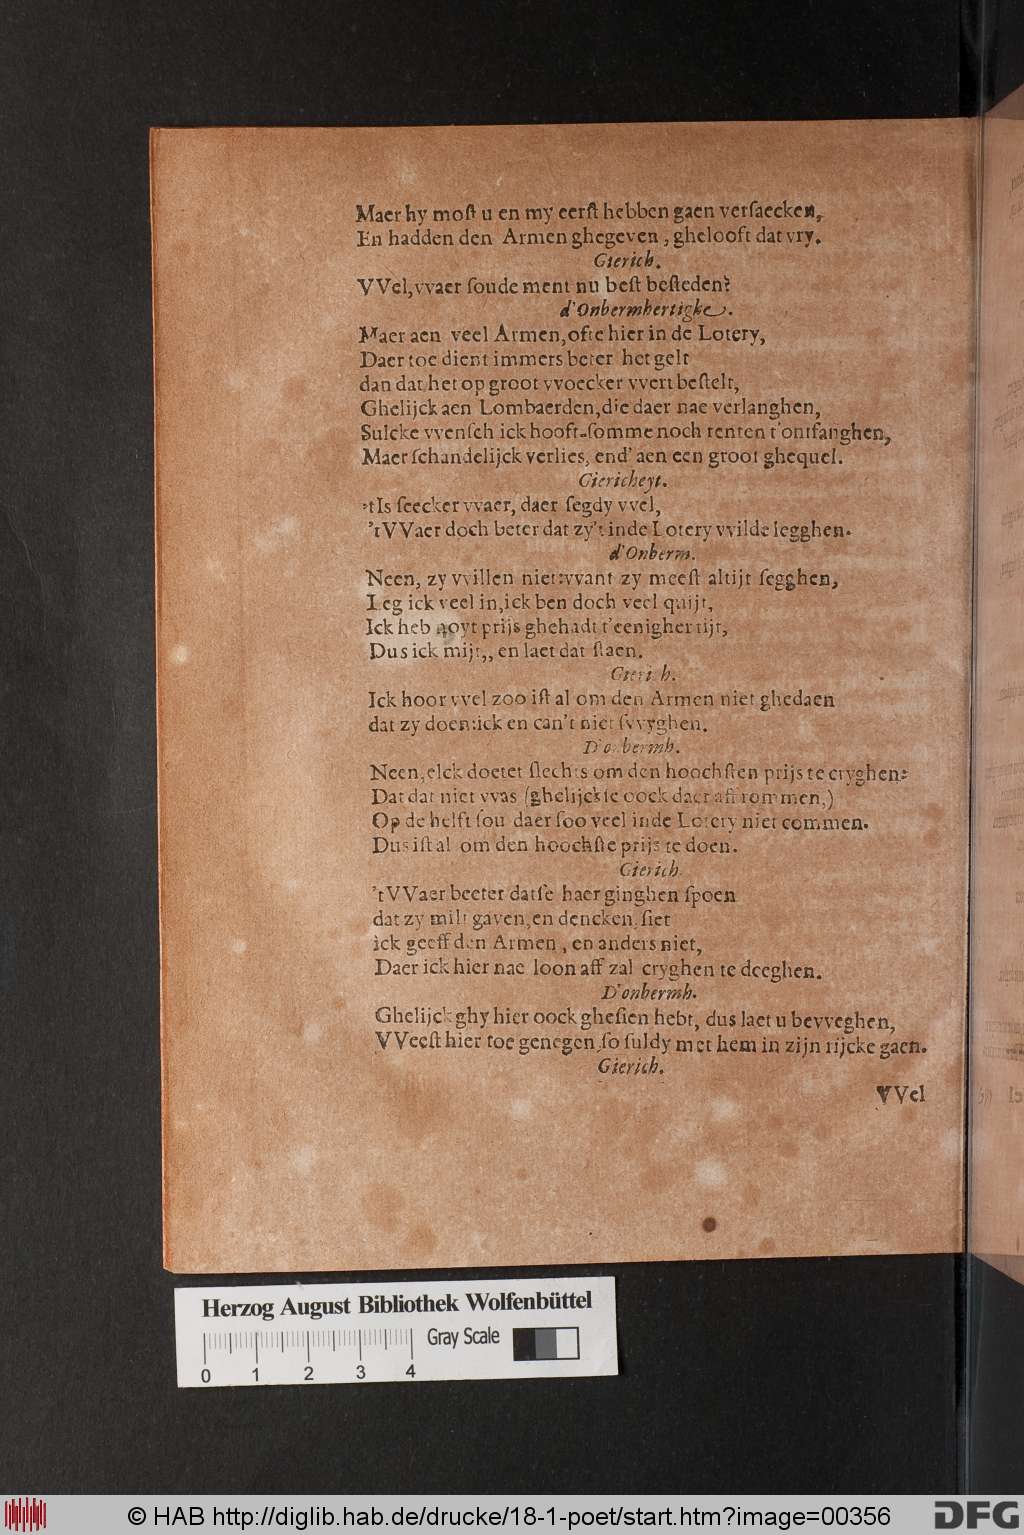 Maer hy moſt u en my eerſt hebben gaen verſaecken,
En hadden den Armen ghegeven, ghelooft dat vry.
Gierich.
VVel, vvaer ſoude ment nu beſt beſteden?
d'Onbermhertigke.
Maer aen veel Armen, ofte hier in de Lotery,
Daer toe dient immers beter het gelt
dan dat het op groot vvoecker vvert beſtelt,
Ghelijck aen Lombaerden, die daer nae verlanghen,
Sulcke vvenſch ick hooft-ſomme noch renten t'ontfanghen,
Maer ſchandelijck verlies, end' aen een groot ghequel.
Giericheyt.
'tIs ſeecker vvaer, daer ſegdy vvel,
'tVVaer doch beter dat zy't inde Lotery vvilde legghen.
d'Onberm.
Neen, zy vvillen niet: vvant zy meeſt altijt ſegghen,
Leg ick veel in, ick ben doch veel quijt,
Ick heb noyt prijs ghehadt t'eenigher tijt,
Dus ick mijt,, en laet dat ſtaen.
Gierich.
Ick hoor vvel zoo iſt al om den Armen niet ghedaen
dat zy doen: ick en can't niet ſvvyghen.
D'onbermh.
Neen, elck doetet ſlechts om den hoochſten prijs te cryghen:
Dat dat niet vvas (ghelijckſe oock daer aff rommen,)
Op de helft ſou daer ſoo veel inde Lotery niet commen.
Dus iſt al om den hoochſte prijs te doen.
Gierich
'tVVaer beeter datſe haer ginghen ſpoen
dat zy milt gaven, en dencken, ſiet
ick geeff den Armen, en anders niet,
Daer ick hier nae loon aff zal cryghen te deeghen.
D'onbermh.
Ghelijck ghy hier oock gheſien hebt, dus laet u bevveghen,
VVeeſt hier toe genegen, ſo ſuldy met hem in zijn rijcke gaen.
Gierich.
VVel
Herzog August Bibliothek Wolfenbüttel
Gray Scale
0 1 2 3 4
© HAB http://diglib.hab.de/drucke/18-1-poet/start.htm?image=00356
DFG